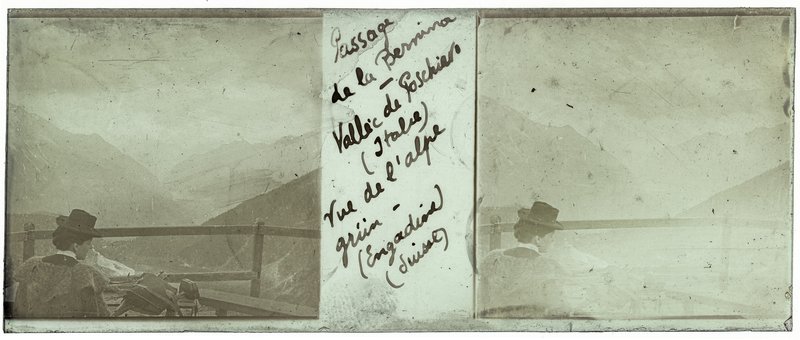 Passage
de la Bernina
-
Vallée de Poschiavo
(Italie)
Vue de l'alpe
grün -
(Engadine)
(Suisse)